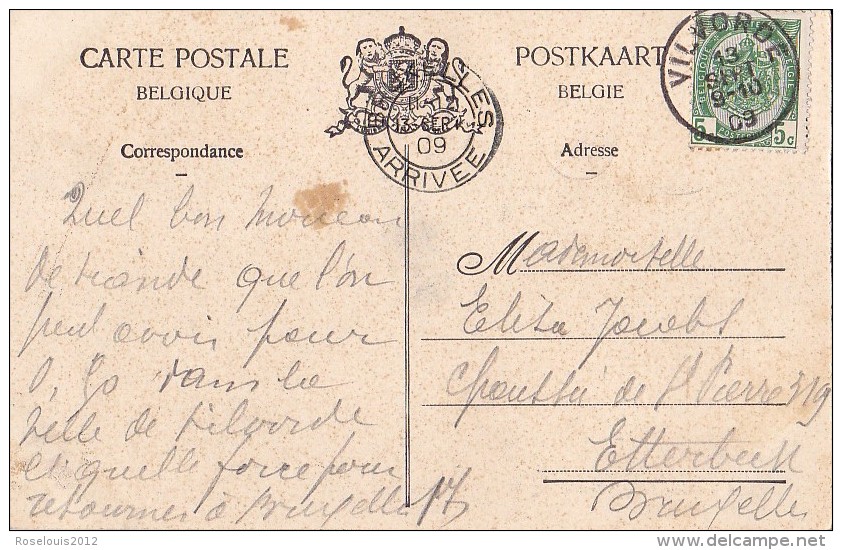 CARTE POSTALE
BELGIQUE
Correspondance
POSTKAART
BELGIE
Adresse
BRUXELLES
13 SEPT
09
ARRIVEE
VILVORDE
13
SEPT
9-10
09
BELGIQUE
BELGIE
5 c
5 c
Quel bon morceau
de viande que l'on
peut avoir pour
0,50 dans la
ville de Vilvorde
et quelle force pour
retourner à Bruxelles
Mademoiselle
Eliza Jacobs
Chaussée de St Pierre 319
Etterbeek
Bruxelles
Roselouis2012
delcampe.net